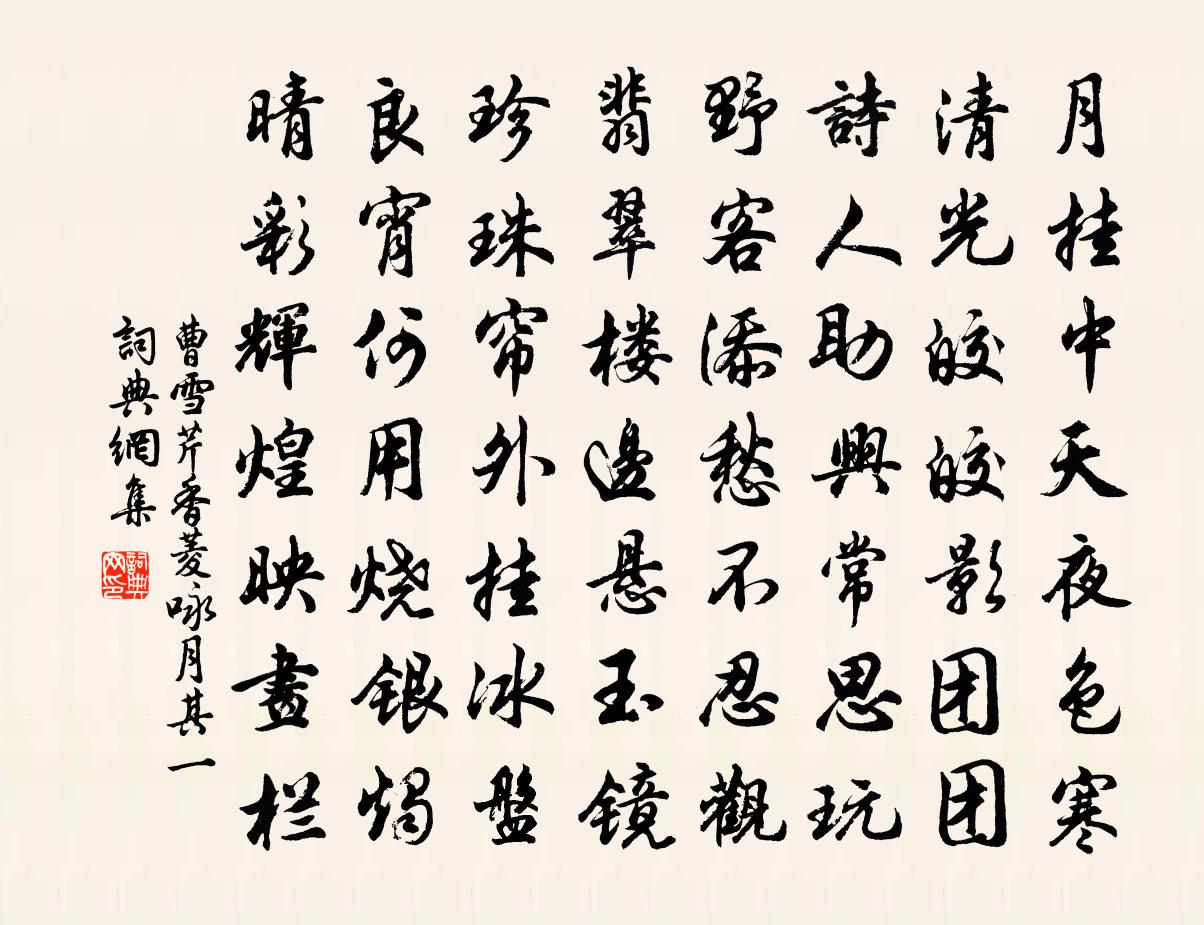 月挂中天夜色寒
清光皎皎影团团
詩人助興常思玩
野客添愁不忍觀
翡翠楼邊悬玉镜
珍珠帘外挂冰盤
良宵何用烧银烛
晴彩輝煌映畫栏
曹雪芹香菱咏月其一
詞典網集
詞典
网印